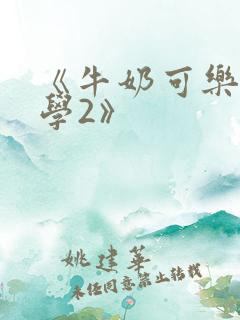 《牛奶可樂
學2》
姚建華
未经同意禁止转载